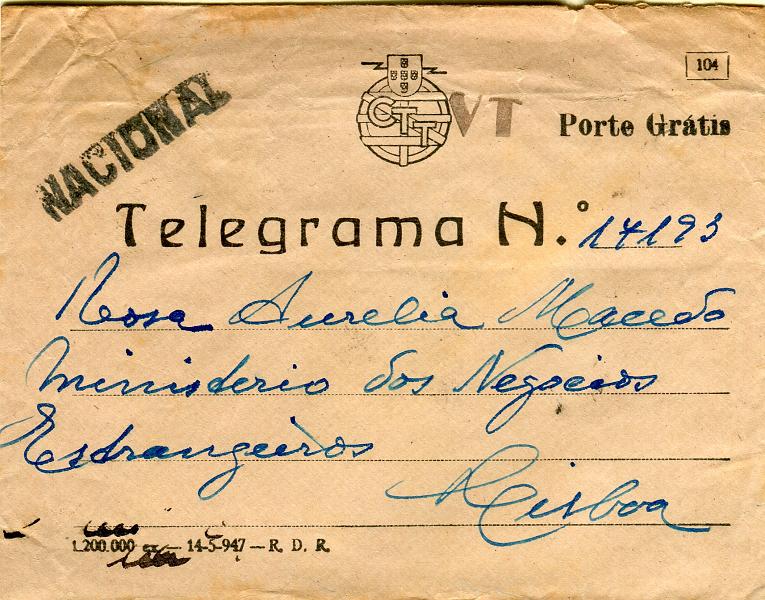 104
NACIONAL
CTT
VT Porte Grátis
Telegrama N.º 14193
Rosa Aurelia Macedo
Ministerio dos Negocios
Estrangeiros
Lisboa
1.200.000 ex. — 14-5-947 — R. D. R.